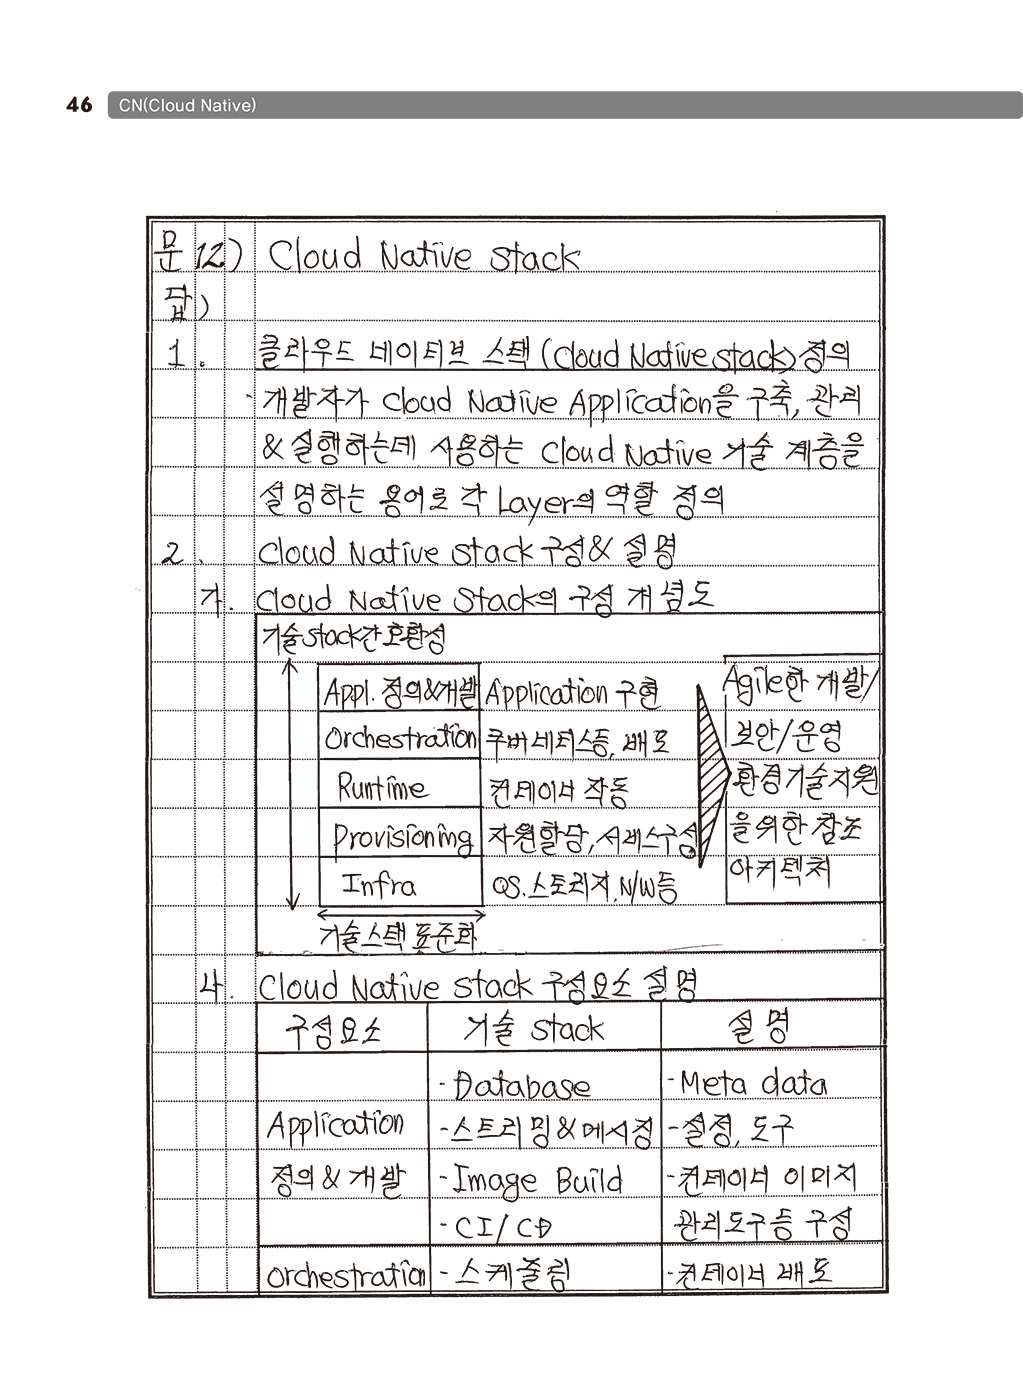 46 CN(Cloud Native)
문 12) Cloud Native Stack
답)
1. 클라우드 네이티브 스택(Cloud Native stack) 정의
- 개발자가 Cloud Native Application을 구축, 관리
& 실행하는데 사용하는 Cloud Native 기술 계층을
설명하는 용어로 각 Layer의 역할 정의
2. Cloud Native Stack 구성 & 설명
가. Cloud Native Stack의 구성 개념도
기술 stack간 호환성
Appl. 정의&개발 Application 구현
Orchestration 쿠버네티스등, 배포
Runtime 컨테이너 작동
Provisioning 자원할당, 서비스구성
Infra OS. 스토리지, N/W등
기술스택 표준화
Agile한 개발/
보안/운영
환경기술지원
을위한 참조
아키텍처
나. Cloud Native Stack 구성요소 설명
구성요소 기술 stack 설명
- Database - Meta data
Application - 스트리밍&메시징 - 설정, 도구
정의 & 개발 - Image Build - 컨테이너 이미지
- CI/CD 관리도구등 구성
Orchestration - 스케줄링 - 컨테이너 배포